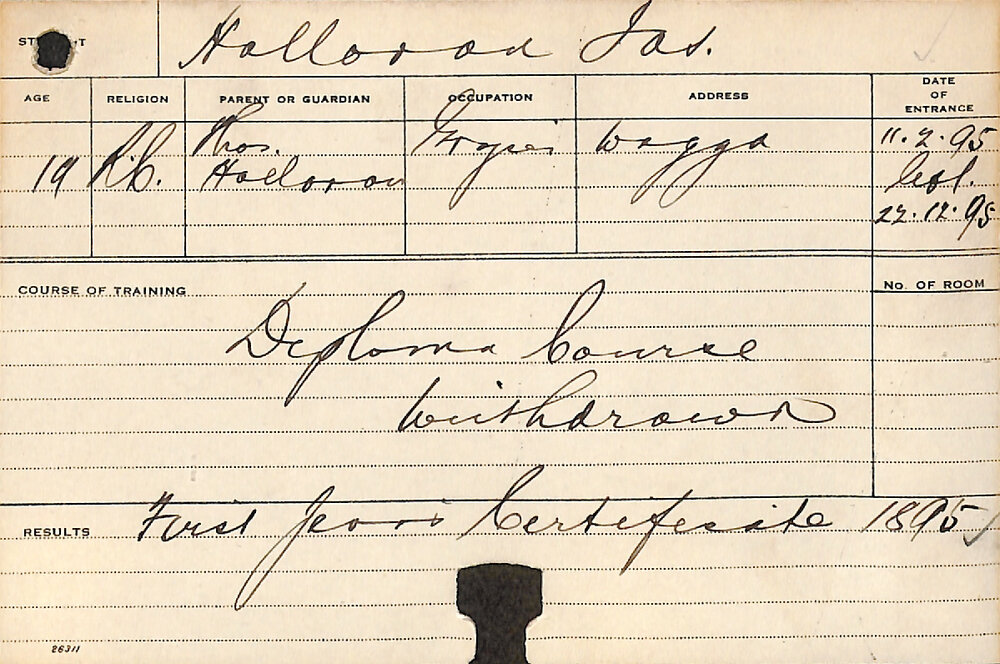 Halloran Jas.
AGE RELIGION PARENT OR GUARDIAN OCCUPATION ADDRESS DATE OF ENTRANCE
19 R.C. Thos. Halloran Grazier Wagga 11.2.95
22.12.95
COURSE OF TRAINING No. OF ROOM
Diploma Course
Withdrawn
RESULTS First Years Certificate 1895
26311